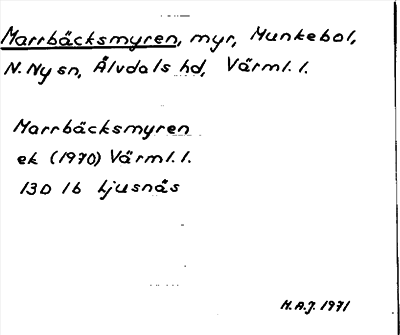 Marrbäcksmyren, myr, Munkebol,
N. Ny sn, Älvdals hd, Värml. l.
Marrbäcksmyren
ek (1970) Värml. l.
13D 1b Ljusnäs
H.A.J. 1971